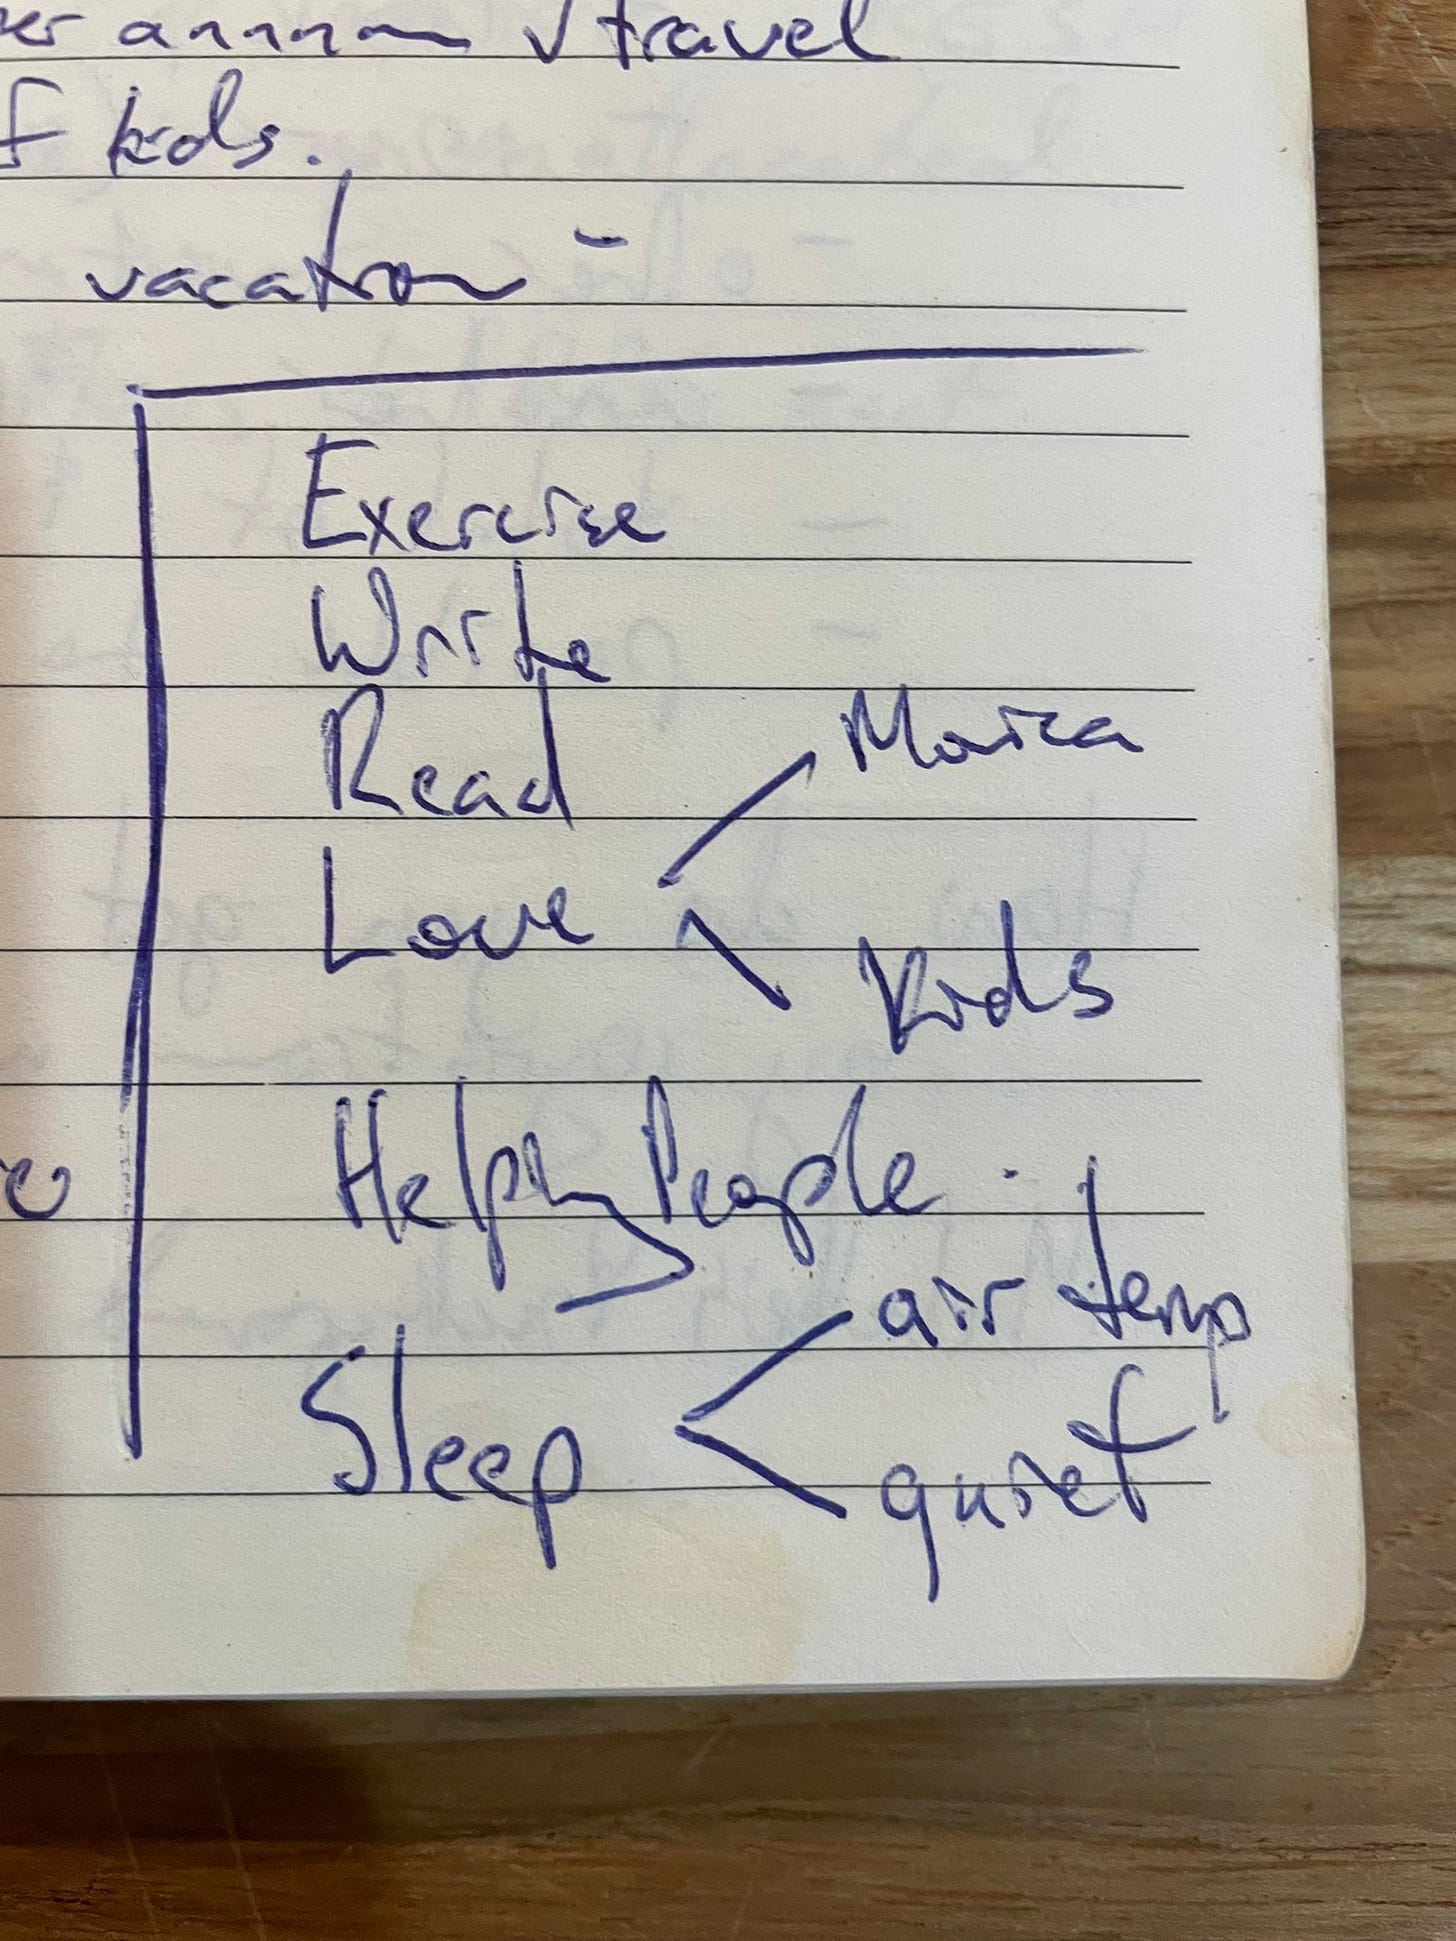 per annum / travel
of kids.
vacation -
Exercise
Write
Read
Love < Moira
Kids
Helping People.
Sleep < air temp
quiet